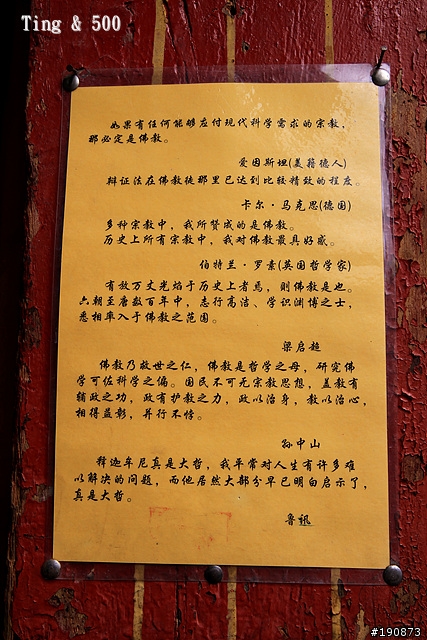 Ting & 500
如果有任何能够应付现代科学需求的宗教，
那必定是佛教。
爱因斯坦(美籍德人)
辩证法在佛教徒那里已达到比较精致的程度。
卡尔·马克思(德国)
多种宗教中，我所赞成的是佛教。
历史上所有宗教中，我对佛教最具好感。
伯特兰·罗素(英国哲学家)
有放万丈光焰于历史上者焉，则佛教是也。
六朝至唐数百年中，志行高洁、学识渊博之士，
悉相率入于佛教之范围。
梁启超
佛教乃救世之仁，佛教是哲学之母，研究佛
学可佐科学之偏。国民不可无宗教思想，盖教有
辅政之功，政有护教之力，政以治身，教以治心，
相得益彰，并行不悖。
孙中山
释迦牟尼真是大哲，我平常对人生有许多难
以解决的问题，而他居然大部分早已明白启示了，
真是大哲。
鲁迅
#190873